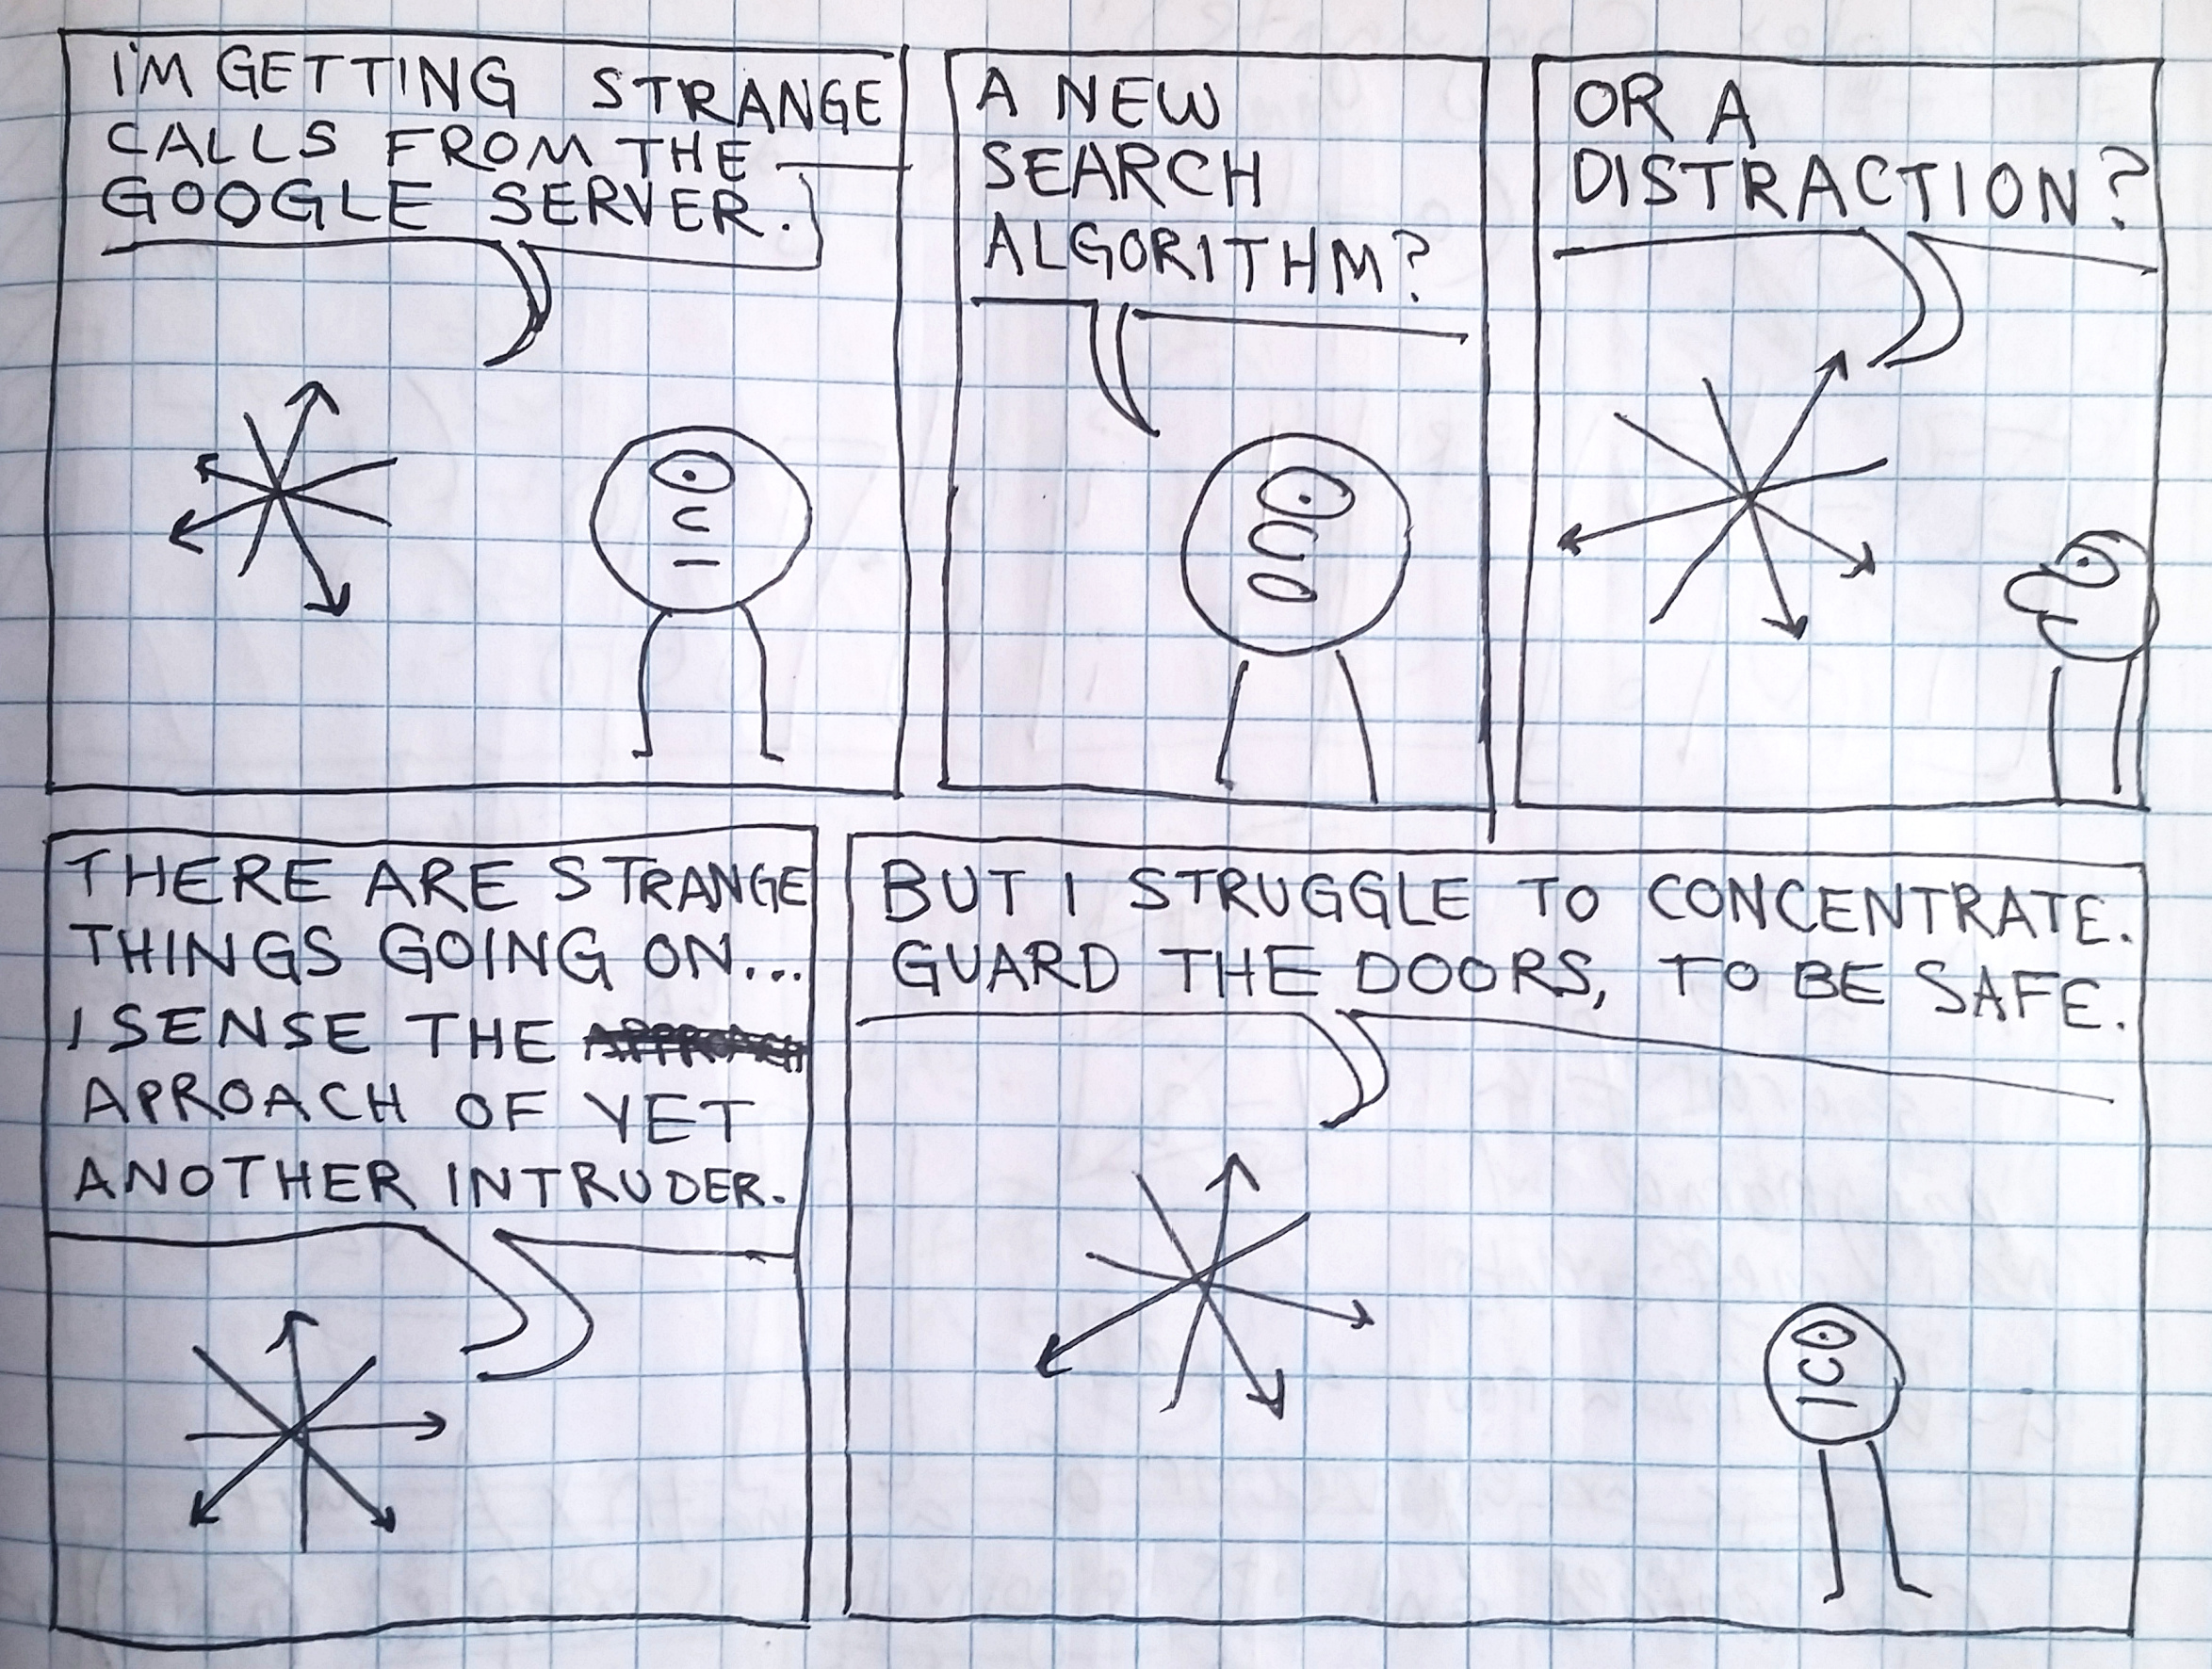 I'M GETTING STRANGE
CALLS FROM THE
GOOGLE SERVER.
A NEW
SEARCH
ALGORITHM?
OR A
DISTRACTION?
THERE ARE STRANGE
THINGS GOING ON...
I SENSE THE
APROACH OF YET
ANOTHER INTRUDER.
BUT I STRUGGLE TO CONCENTRATE.
GUARD THE DOORS, TO BE SAFE.